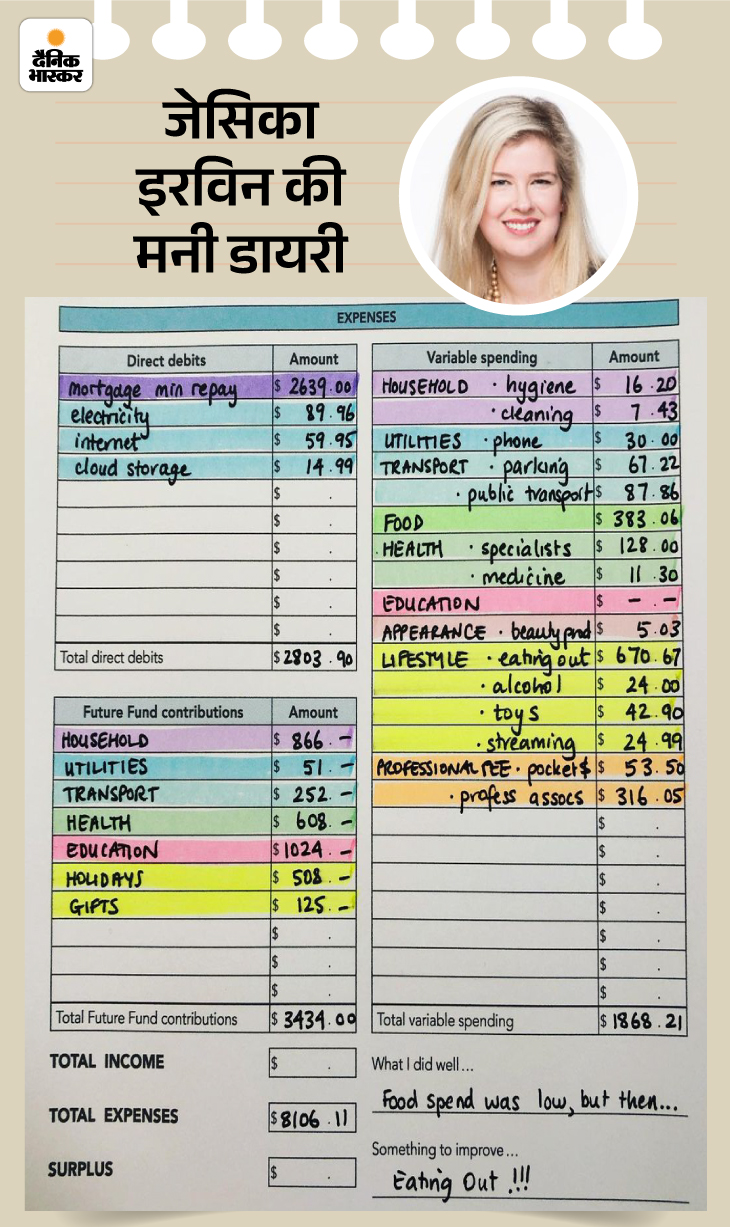 दैनिक
भास्कर
जेसिका
इरविन की
मनी डायरी
EXPENSES
Direct debits Amount
mortgage min repay $ 2639.00
electricity $ 89.96
internet $ 59.95
cloud storage $ 14.99
$ .
$ .
$ .
$ .
$ .
$ .
Total direct debits $2803.90
Future Fund contributions Amount
HOUSEHOLD $ 866.-
UTILITIES $ 51.-
TRANSPORT $ 252.-
HEALTH $ 608.-
EDUCATION $1024.-
HOLIDAYS $ 508.-
GIFTS $ 125.-
$ .
$ .
$ .
Total Future Fund contributions $ 3434.00
TOTAL INCOME $ .
TOTAL EXPENSES $8106.11
SURPLUS $ .
Variable spending Amount
HOUSEHOLD · hygiene $ 16.20
· cleaning $ 7.43
UTILITIES · phone $ 30.00
TRANSPORT · parking $ 67.22
· public transport $ 87.86
FOOD $ 383.06
HEALTH · specialists $ 128.00
· medicine $ 11.30
EDUCATION $ -.-
APPEARANCE · beauty prod $ 5.03
LIFESTYLE · eating out $ 670.67
· alcohol $ 24.00
· toys $ 42.90
· streaming $ 24.99
PROFESSIONAL FEE · pocket $ $ 53.50
· profess assocs $ 316.05
$ .
$ .
$ .
$ .
$ .
$ .
$ .
Total variable spending $ 1868.21
What I did well...
Food spend was low, but then...
Something to improve...
Eating Out !!!